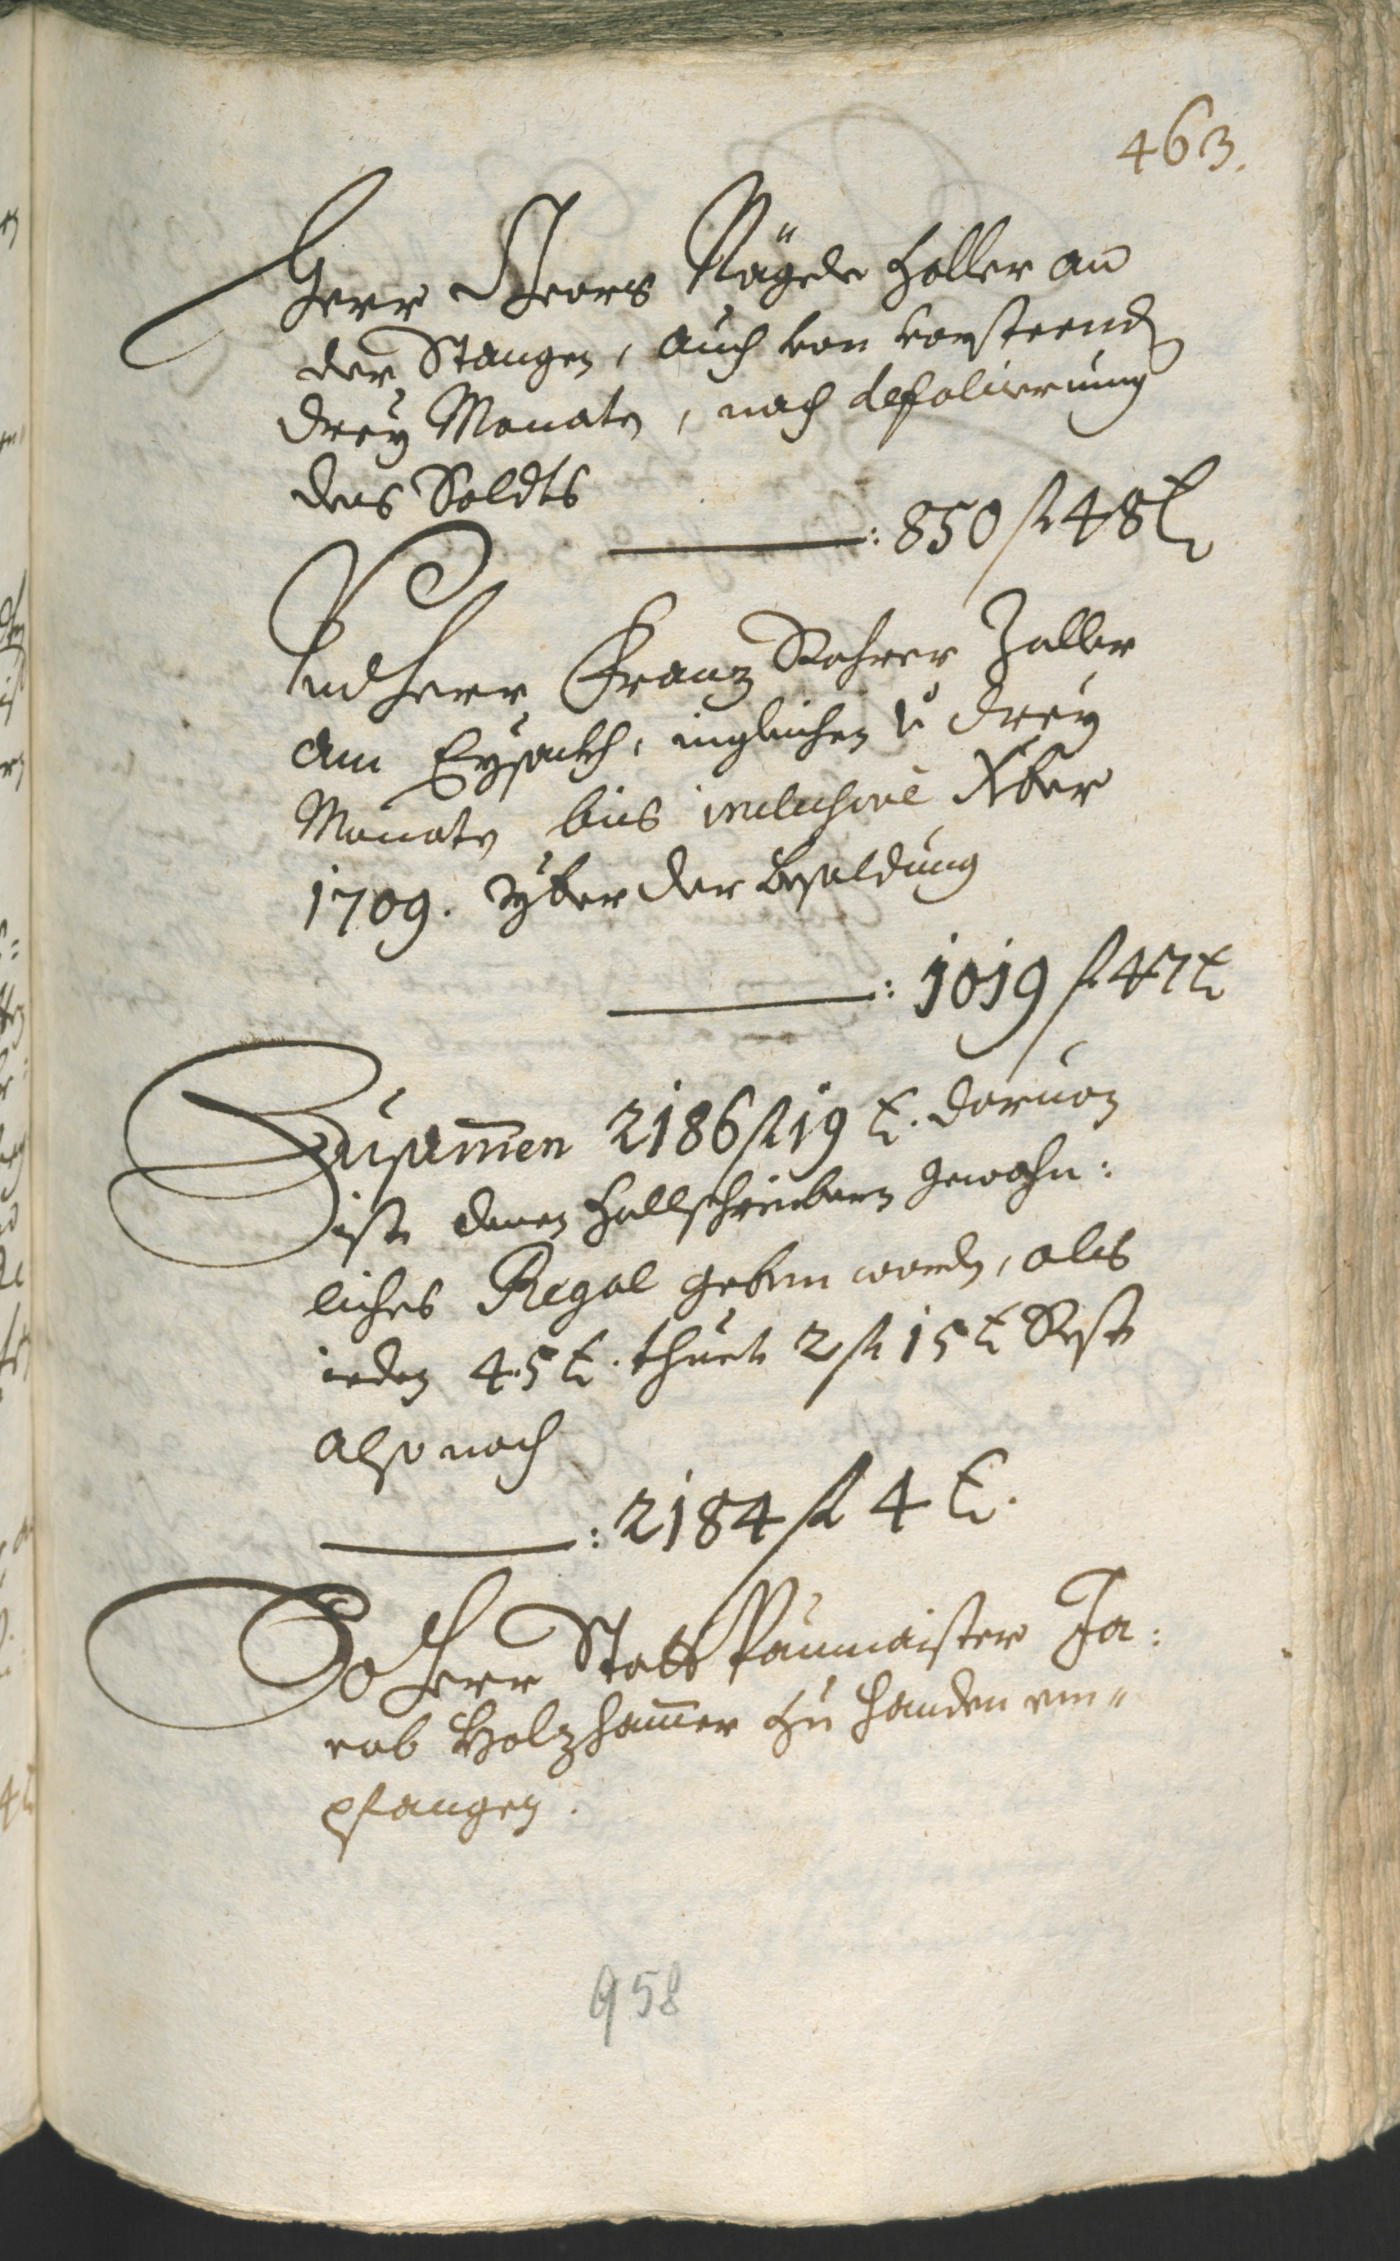 463.
Herr Georg Nägele Zoller an
der Stangen, auch von vorsteend
drey Monatn, nach defalcierung
des Soldts
———: 850 fl 48 x
Und Herr Franz Rohrer Zoller
am Eysackh, ingleichen v drey
Monatn bis inclusive Xber
1709. yber der besoldung
———: 1019 fl 47 x
Zusamen 2186 fl 19 x. daruon
ist denen Zollschreibern gewohn:
liches Regal geben worden, als
ieden 45 x. thuet 2 fl 15 x Rest
also noch
———: 2184 fl 4 x.
So Herr Statt Paumaister Ja:
cob Holzhamer zu handen em„
pfangen.
958